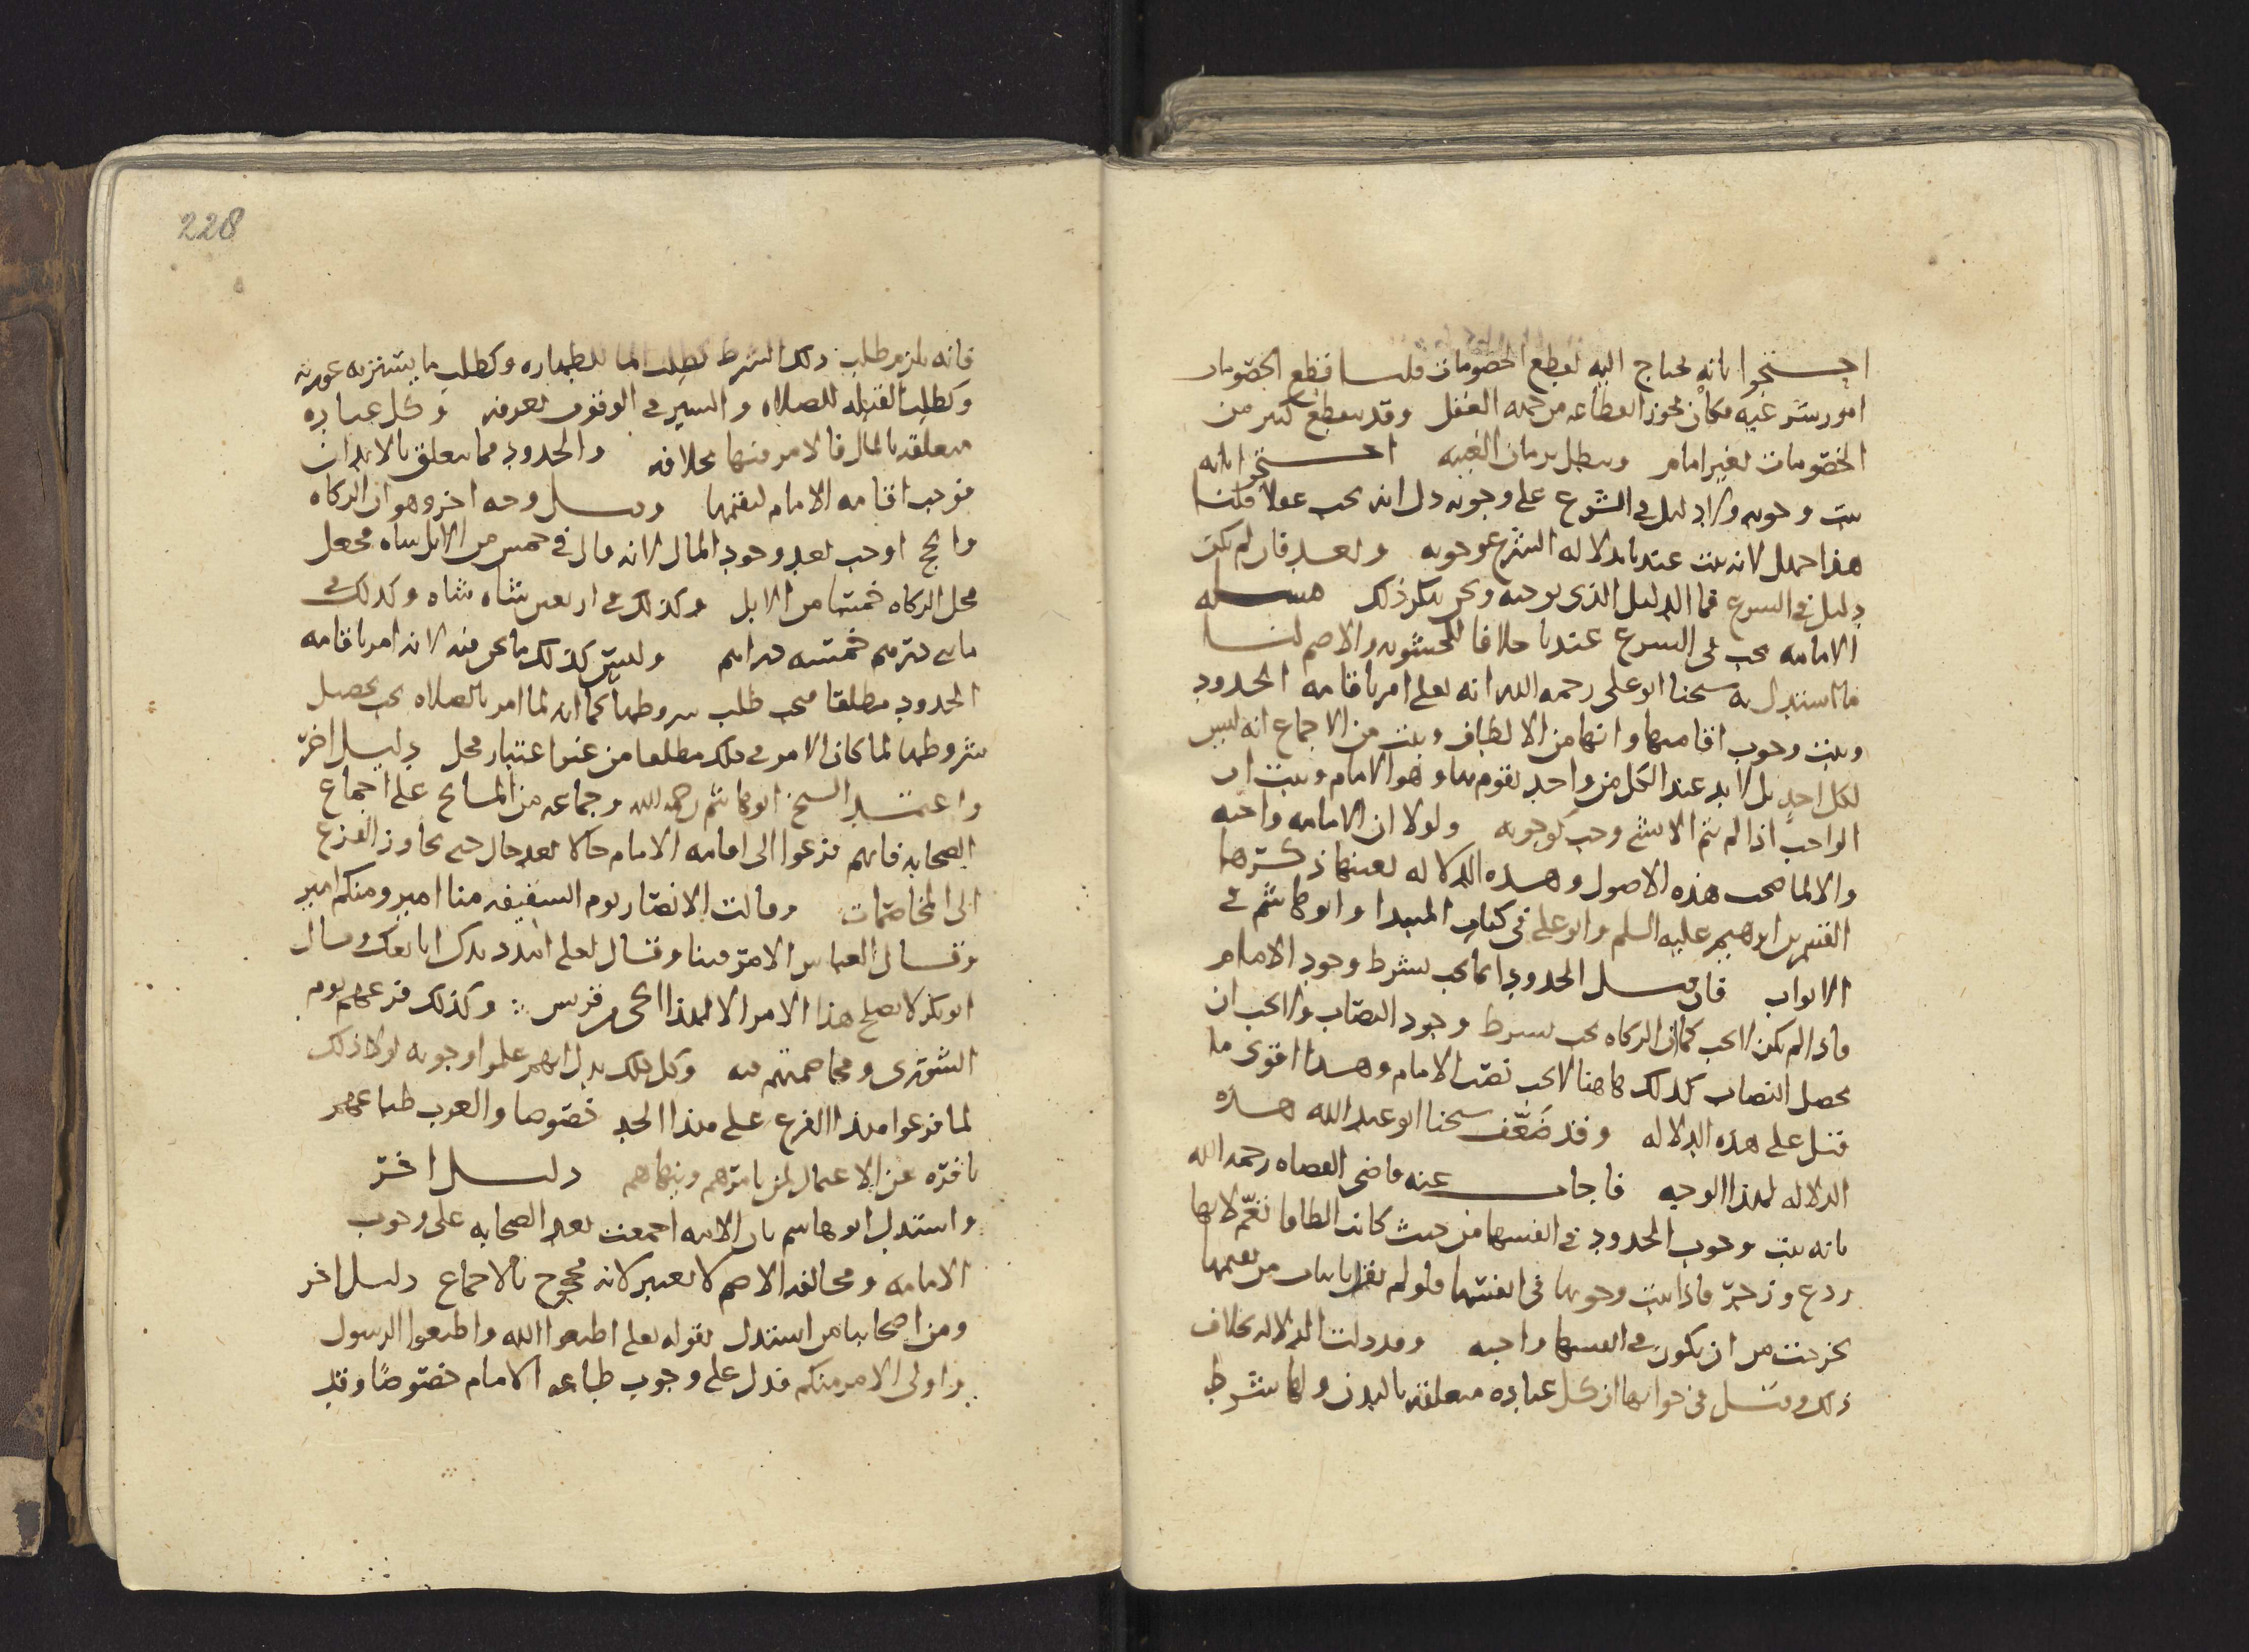 احتجوا بانه يحتاج اليه لقطع الخصومات قلنا قطع الخصومات
امور شرعيه فكان يجوز انقطاعه من جهه العقل وقد ينقطع كثير من
الخصومات بغير امام ويبطل بزمان الغيبه احتجوا بانه
يثبت وجوبه ولا دليل في الشرع على وجوبه دل انه يجب عقلا قلنا
هذا جهل لانه يثبت عندنا بدلاله الشرع وجوبه وبعد فان لم يكن
دليل في الشرع فما الدليل الذي يوجبه ونحن ننكر ذلك مسله
الامامه يجب في الشرع عندنا خلافا للحشويه والاصم لنا
ما استدل به شيخنا ابو علي رحمه الله انه تعلى امر باقامه الحدود
ويثبت وجوب اقامتها وانها من الالطاف ويثبت من الاجماع انه ليس
لكل احد بل لا بد عند الكل من واحد يقوم بها وهو الامام ويثبت ان
الواجب اذا لم يتم الا بشي وجب كوجوبه ولولا ان الامامه واجبه
والا لما صحت هذه الاصول وهذه الدلاله بعينها ذكرها
القسم بن ابرهيم عليه السلم وابو علي في كتاب المبدا وابو هاشم في
الابواب فان قيل الحدود انما يجب بشرط وجود الامام
فاذا لم يكن لا يجب كما ان الزكاه يجب بشرط وجود النصاب ولا يجب ان
يحصل النصاب كذلك هاهنا لا يجب نصب الامام وهذا اقوى ما
قيل على هذه الدلاله وقد ضعّف شيخنا ابو عبد الله هذه
الدلاله لهذا الوجه فاجاب عنه قاضي القضاه رحمه الله
بانه يثبت وجوب الحدود في انفسها من حيث كانت الطافا تعّم لانها
ردع وزجر فاذا يثبت وجوبها في انفسها فلو لم نقل باثبات من يقيمها
خرجت من ان يكون في انفسها واجبه وقد دلت الدلاله بخلاف
ذلك وقيل في جوابها ان كل عباده متعلقه بالبدن ولها شرط
228
فانه يلزم طلب ذلك الشرط كطلب الما للطهاره وكطلب ما يستر به عورته
وكطلب القبله للصلاه والسير في الوقوف بعرفه وكل عباده
متعلقه بالمال فالامر فيها بخلافه والحدود مما يتعلق بالابدان
فوجب اقامه الامام ليقيمها وقيل وجه اخر وهو ان الزكاه
والحج اوجب بعد وجود المال لانه قال في خمس من الابل شاه فجعل
محل الزكاه خمسا من الابل وكذلك في اربعين شاه شاه وكذلك في
ماتي درهم خمسه دراهم وليس كذلك ما نحن فيه لانه امر باقامه
الحدود مطلقا فيجب طلب شروطها كما انه لما امر بالصلاه يجب تحصيل
شروطها لما كان الامر في ذلك مطلقا من غير اعتبار محل دليل اخر
واعتمد الشيخ ابو هاشم رحمه الله وجماعه من المشايخ على اجماع
الصحابه فانهم فزعوا الى اقامه الامام حالا بعد حال حتى تجاوز الفزع
الى المخاصمات وقالت الانصار يوم السقيفه منا امير ومنكم امير
وقال العباس الامر فينا وقال لعلي امدد يدك ابايعك وقال
ابو بكر لا يصلح هذا الامر الا لهذا الحي من قريش وكذلك فزعهم يوم
الشورى ومخاصمتهم فيه وكل ذلك يدل انهم علموا وجوبه لولا ذلك
لما فزعوا هذا الفزع على هذا الحد خصوصا والعرب طباعهم
نافره عن الاعمال لمن يامرهم وينهاهم دليل اخر
واستدل ابو هاشم بان الامه اجمعت بعد الصحابه على وجوب
الامامه ومخالفه الاصم لا يعتبر لانه محجوج بالاجماع دليل اخر
ومن اصحابنا من استدل بقوله تعلى اطيعوا الله واطيعوا الرسول
واولي الامر منكم فدل على وجوب طاعه الامام خصوصًا وقد